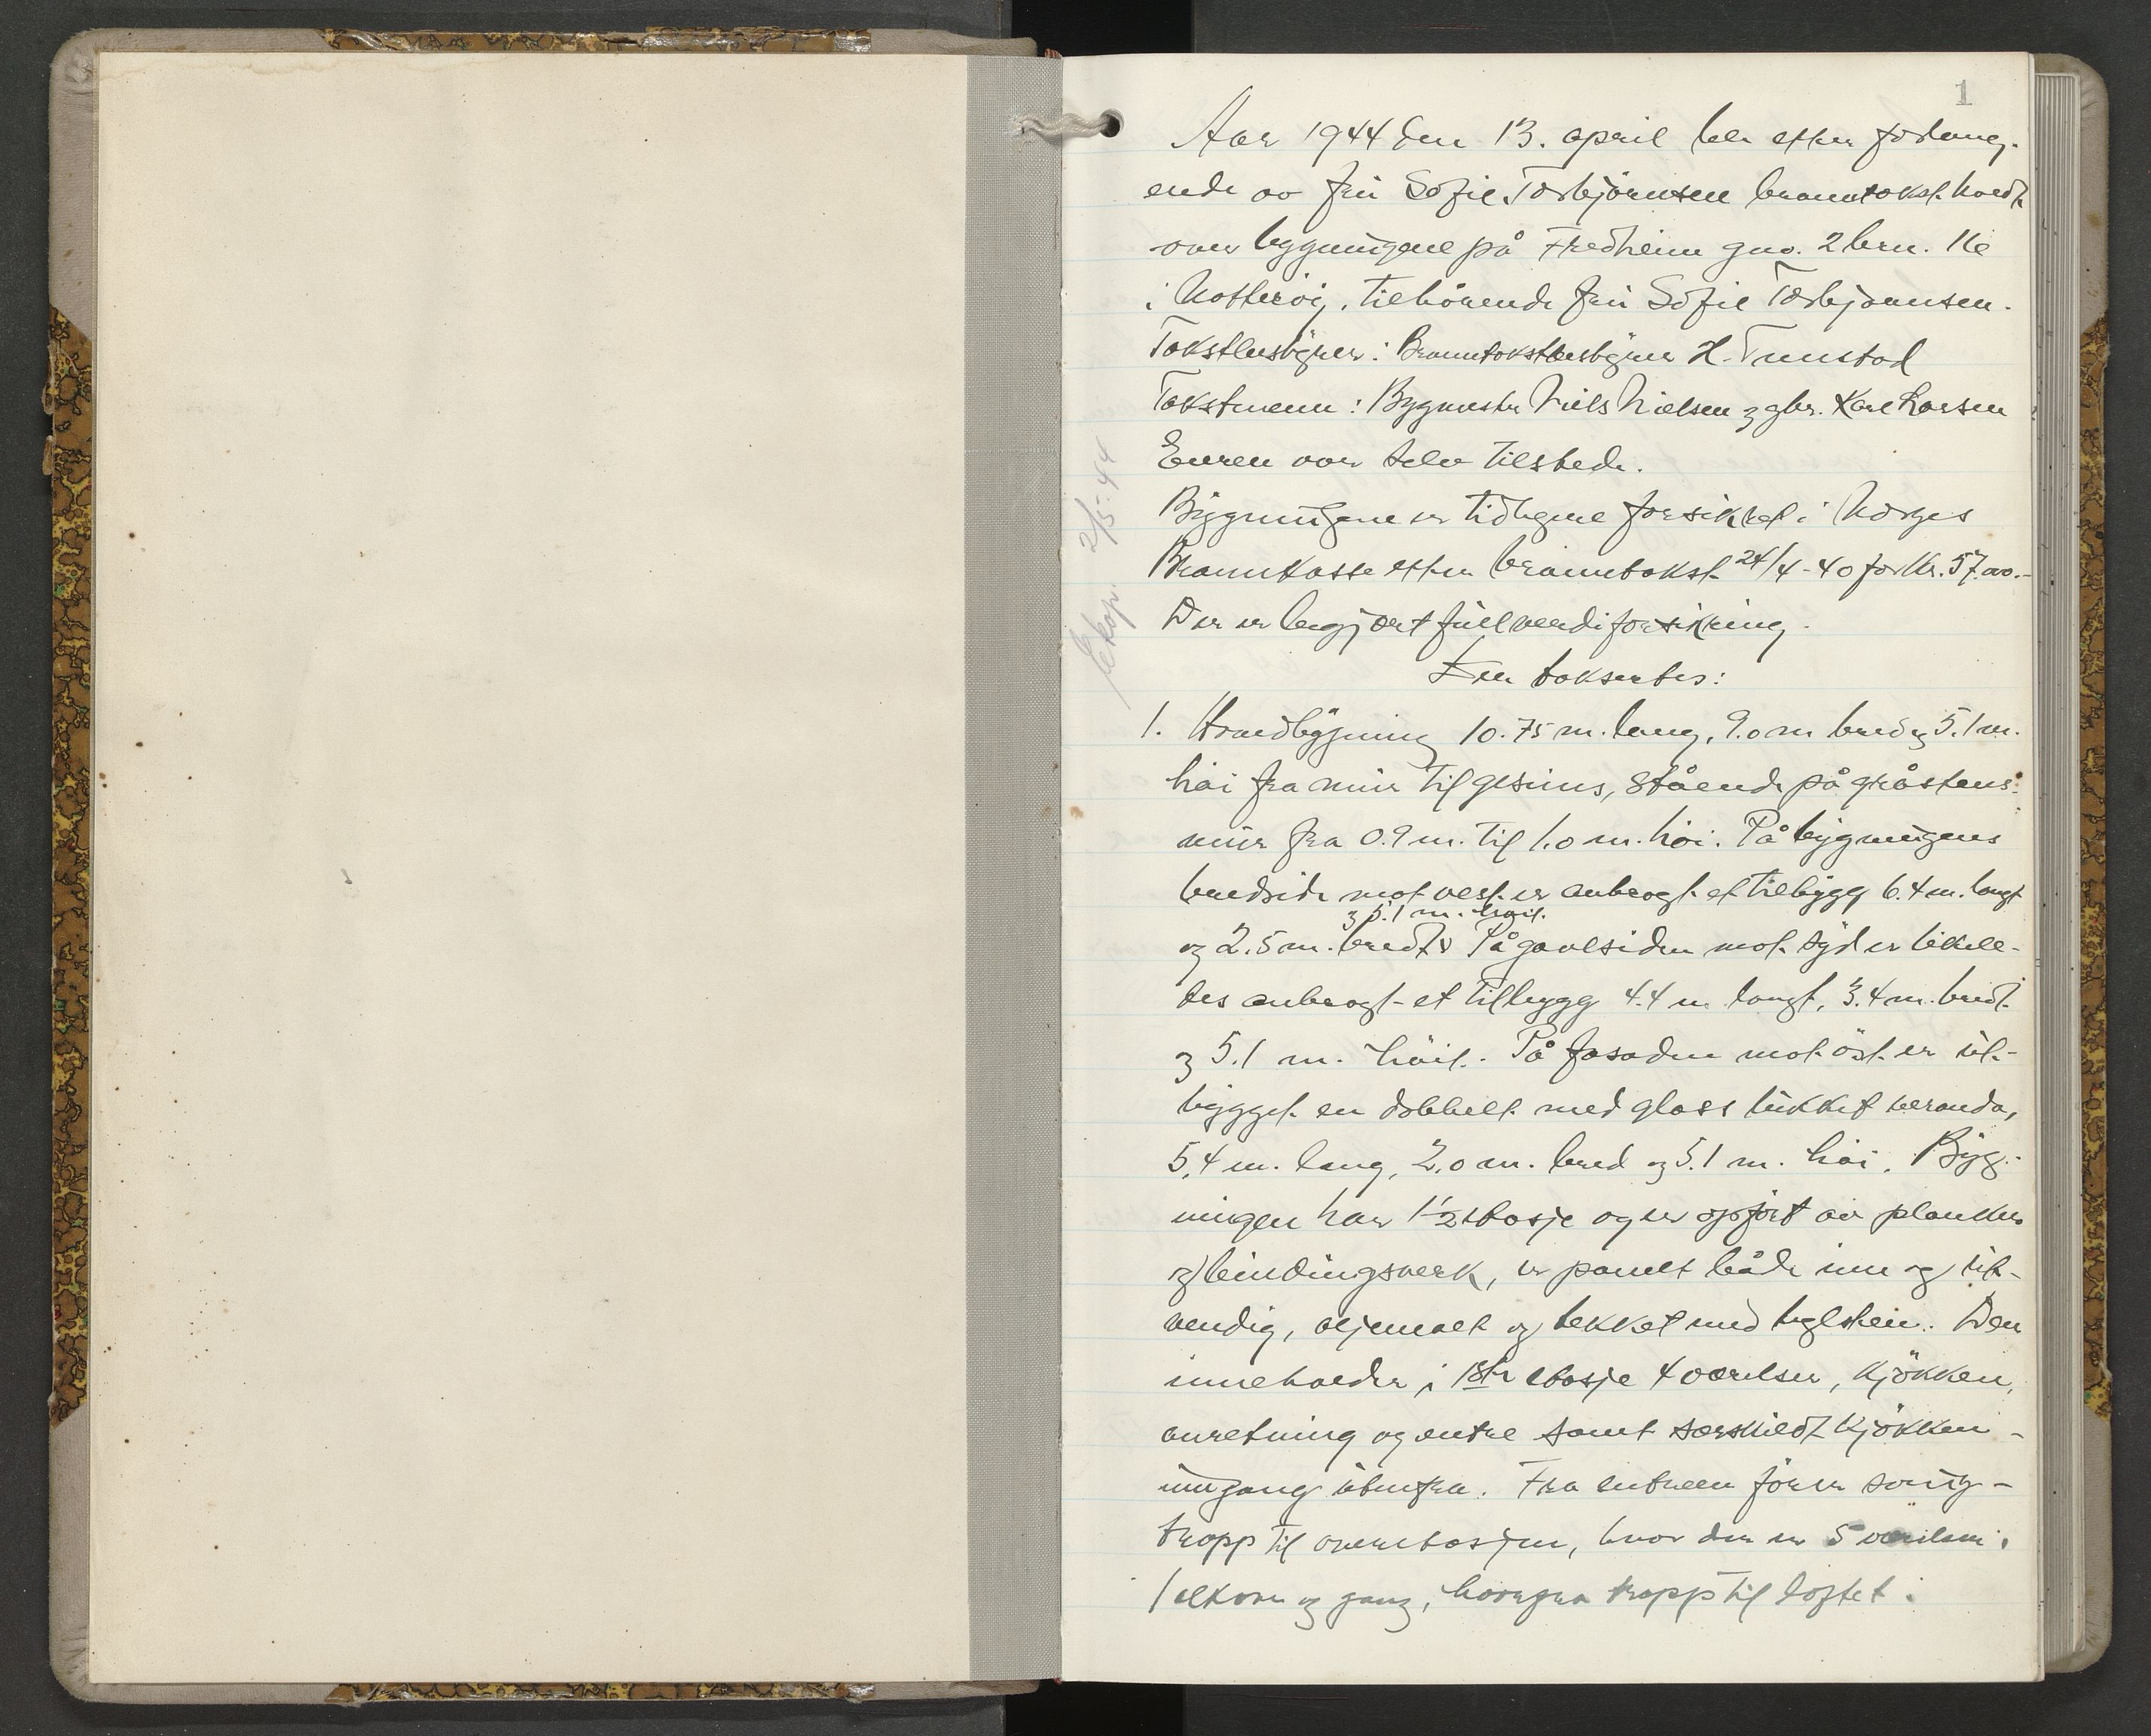 1
Aar 1944 den 13. april ble etter forlang-
ende av fru Sofie Torbjørnsen branntakst holdt
over bygningene på Fredheim gno. 2 brn. 16
i Nøtterøy, tilhørende fru Sofie Torbjørnsen.
Takstbestyrer: Branntakstbestyrer H. Tunstad
Takstmenn: Bygmester Niels Nielsen og gbr. Karl Larsen
Eieren var selv tilstede.
Bygningene er tidligere forsikret i Norges
Brannkasse etter branntakst 24/4-40 for kr. 57.000.-
Der er begjært fullverdiforsikring.
Den taksertes:
1. Hovedbygning 10.75 m. lang, 9.0 m bred og 5.1 m.
høi fra mur til gesims, stående på gråstens-
mur fra 0.9 m. til 1.0 m. høi. På bygningens
bredside mot vest er anbragt et tilbygg 6.4 m. langt
og 5.1 m. høit.
og 2.5 m. bredt v På gavlsiden mot syd er likele-
des anbragt et tilbygg 4.4 m langt, 3.4 m. bredt
og 5.1 m. høit. På fasaden mot øst er ut-
bygget en dobbelt med glass lukket veranda,
5,4 m. lang, 2.0 m. bred og 5.1 m. høi. Byg-
ningen har 1 1/2 etasje og er opført av planker
og bindingsverk, er panelt både inn og ut-
vendig, oljemalt og tekket med teglstein. Den
inneholder i 1ste etasje 4 værelser, kjøkken,
anretning og entre samt særskildt kjøkken-
inngang utenfra. Fra entreen fører sving-
trapp til overetasjen, hvor der er 5 værelser,
1 alkove og gang, hvorfra trapp til loftet.
Ekop. 2/5-44